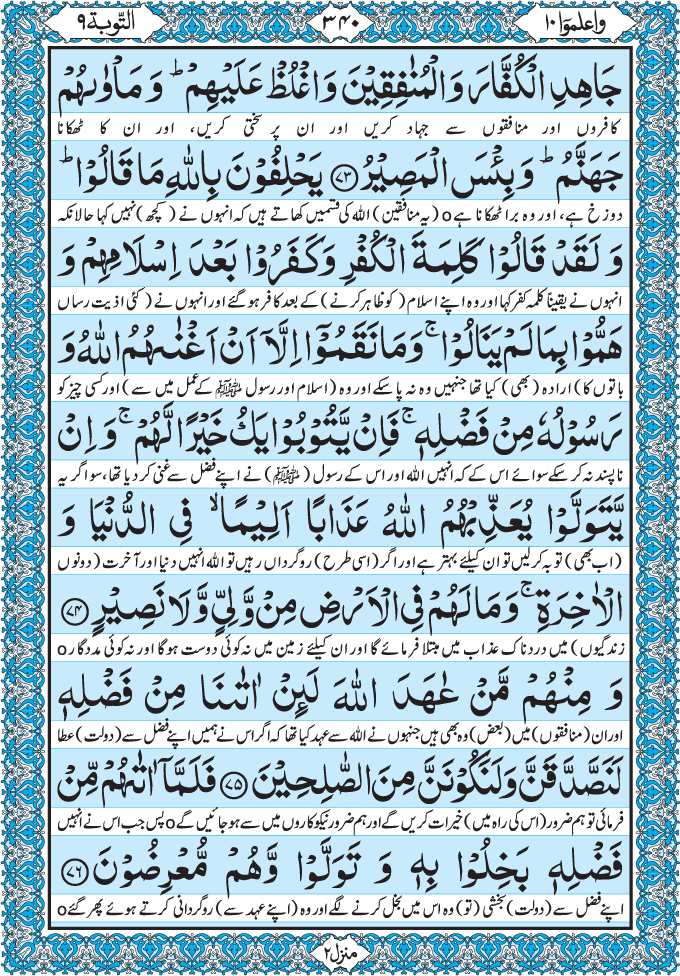 واعلموا ۱۰
۳۴۰
التوبة ۹
جَاهِدِ الْكُفَّارَ وَالْمُنٰفِقِيْنَ وَاغْلُظْ عَلَيْهِمْ ؕ وَ مَاْوٰىهُمْ
کافروں اور منافقوں سے جہاد کریں اور ان پر سختی کریں، اور ان کا ٹھکانا
جَهَنَّمُ ؕ وَ بِئْسَ الْمَصِيْرُ ﴿۷۳﴾ يَحْلِفُوْنَ بِاللّٰهِ مَا قَالُوْا ؕ
دوزخ ہے، اور وہ برا ٹھکانا ہے o (یہ منافقین) اللہ کی قسمیں کھاتے ہیں کہ انہوں نے (کچھ) نہیں کہا حالانکہ
وَ لَقَدْ قَالُوْا كَلِمَةَ الْكُفْرِ وَ كَفَرُوْا بَعْدَ اِسْلَامِهِمْ وَ
انہوں نے یقیناً کلمہ کفر کہا اور وہ اپنے اسلام (کو ظاہر کرنے) کے بعد کافر ہو گئے اور انہوں نے (کئی اذیت رساں
هَمُّوْا بِمَا لَمْ يَنَالُوْا ۚ وَ مَا نَقَمُوْۤا اِلَّاۤ اَنْ اَغْنٰىهُمُ اللّٰهُ وَ
باتوں کا) ارادہ (بھی) کیا تھا جنہیں وہ نہ پا سکے اور وہ (اسلام اور رسول ﷺ کے عمل میں سے) اور کسی چیز کو
رَسُوْلُهٗ مِنْ فَضْلِهٖ ۚ فَاِنْ يَّتُوْبُوْا يَكُ خَيْرًا لَّهُمْ ۚ وَ اِنْ
ناپسند نہ کر سکے سوائے اس کے کہ انہیں اللہ اور اس کے رسول (ﷺ) نے اپنے فضل سے غنی کر دیا تھا، سو اگر یہ
يَّتَوَلَّوْا يُعَذِّبْهُمُ اللّٰهُ عَذَابًا اَلِيْمًا ۙ فِي الدُّنْيَا وَ
(اب بھی) توبہ کر لیں تو ان کیلئے بہتر ہے اور اگر (اسی طرح) روگرداں رہیں تو اللہ انہیں دنیا اور آخرت (دونوں
الْاٰخِرَةِ ۚ وَ مَا لَهُمْ فِي الْاَرْضِ مِنْ وَّلِيٍّ وَّ لَا نَصِيْرٍ ﴿۷۴﴾
زندگیوں) میں دردناک عذاب میں مبتلا فرمائے گا اور ان کیلئے زمین میں نہ کوئی دوست ہوگا اور نہ کوئی مددگار o
وَ مِنْهُمْ مَّنْ عٰهَدَ اللّٰهَ لَىِٕنْ اٰتٰىنَا مِنْ فَضْلِهٖ
اور ان (منافقوں) میں (بعض) وہ بھی ہیں جنہوں نے اللہ سے عہد کیا تھا کہ اگر اس نے ہمیں اپنے فضل سے (دولت) عطا
لَنَصَّدَّقَنَّ وَ لَنَكُوْنَنَّ مِنَ الصّٰلِحِيْنَ ﴿۷۵﴾ فَلَمَّاۤ اٰتٰىهُمْ مِّنْ
فرمائی تو ہم ضرور (اس کی راہ میں) خیرات کریں گے اور ہم ضرور نیکوکاروں میں سے ہو جائیں گے o پس جب اس نے انہیں
فَضْلِهٖ بَخِلُوْا بِهٖ وَ تَوَلَّوْا وَّ هُمْ مُّعْرِضُوْنَ ﴿۷۶﴾
اپنے فضل سے (دولت) بخشی (تو) وہ اس میں بخل کرنے لگے اور وہ (اپنے عہد سے) روگردانی کرتے ہوئے پھر گئے o
منزل ۲